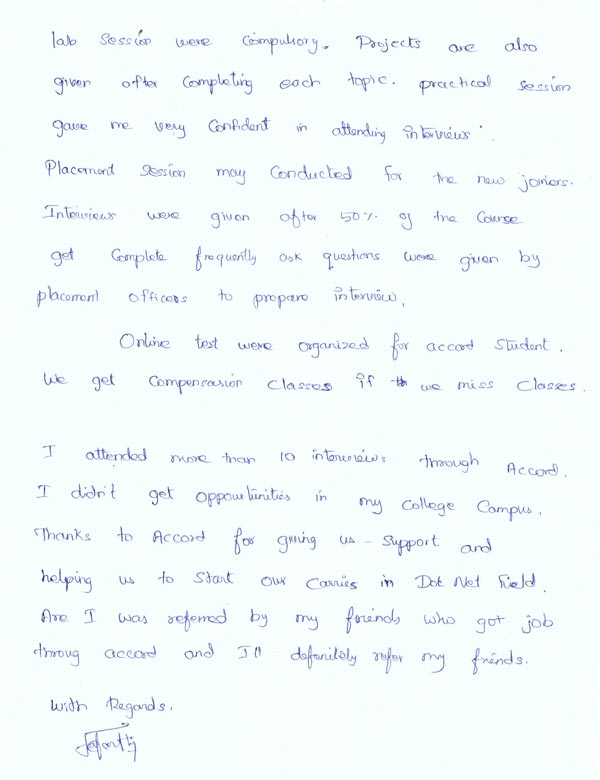 lab session were compulsory. Projects are also
given after completing each topic. practical session
gave me very confident in attending interviews.
Placement session may conducted for the new joiners.
Interviews were given after 50% of the course
get complete frequently ask questions were given by
placement officers to prepare interview.
Online test were organized for accord student.
We get compensasion classes if we miss classes.
I attended more than 10 interviews through Accord.
I didn't get oppourtunities in my college campus.
Thanks to Accord for giving us - support and
helping us to start our carries in Dot Net field.
Are I was referred by my friends who got job
throug accord and I'll definitely refer my friends.
with Regards.